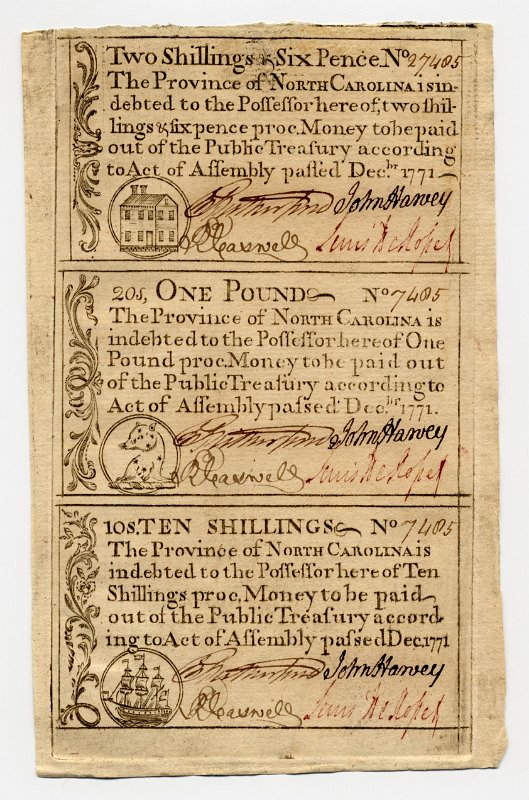 Two Shillings & Six Pence. No 27485
The Province of NORTH CAROLINA is in-
debted to the Possessor hereof, two shil-
lings & sixpence proc. Money to be paid
out of the Public Treasury according
to Act of Assembly passed Decbr 1771.
Rutherfurd John Harvey
R Caswell Lewis De Rosset
20s, ONE POUND No 7485
The Province of NORTH CAROLINA is
indebted to the Possessor hereof One
Pound proc. Money to be paid out
of the Public Treasury according to
Act of Assembly passed Decbr 1771.
Rutherfurd John Harvey
R Caswell Lewis De Rosset
10S. TEN SHILLINGS No 7485
The Province of NORTH CAROLINA is
indebted to the Possessor here of Ten
Shillings proc. Money to be paid
out of the Public Treasury accord
ing to Act of Assembly passed Dec. 1771
Rutherfurd John Harvey
R Caswell Lewis De Rosset